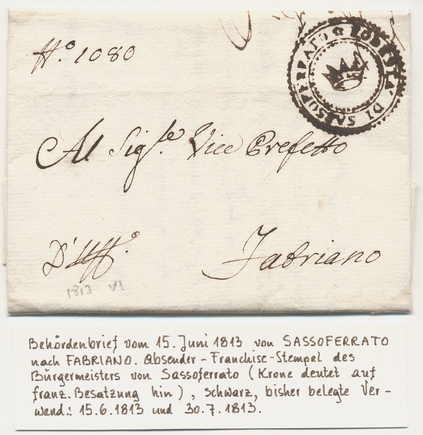 N.º 1080
PODESTA' DI SASSOFERRATO
Al Sig.re Vice Prefetto
D'Uff.º
Fabriano
1813 VI
Behördenbrief vom 15. Juni 1813 von SASSOFERRATO
nach FABRIANO. Absender-Franchise-Stempel des
Bürgermeisters von Sassoferrato (Krone deutet auf
franz. Besatzung hin), schwarz, bisher belegte Ver-
wend.: 15.6.1813 und 30.7.1813.